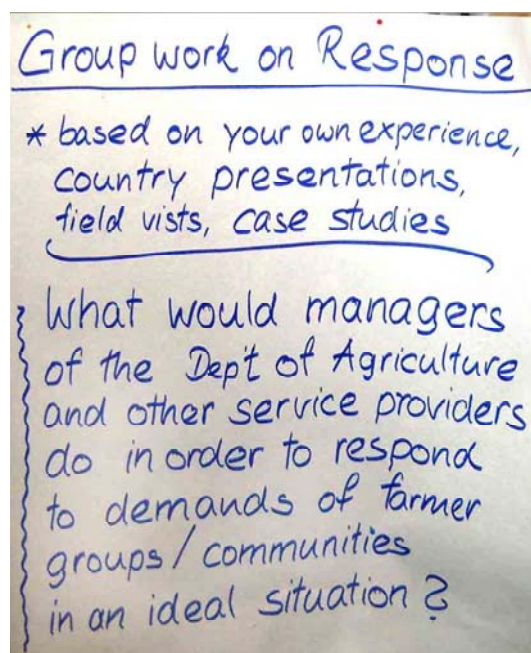 Group work on Response
* based on your own experience,
country presentations,
field vists, case studies
What would managers
of the Dep't of Agriculture
and other service providers
do in order to respond
to demands of farmer
groups / communities
in an ideal situation ?